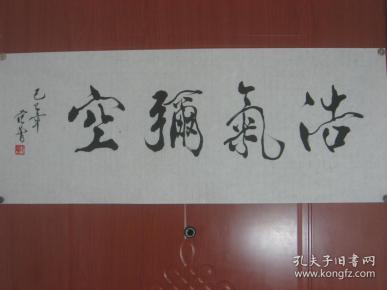 浩氣彌空
己巳年
孔夫子旧书网
www.kongfz.com